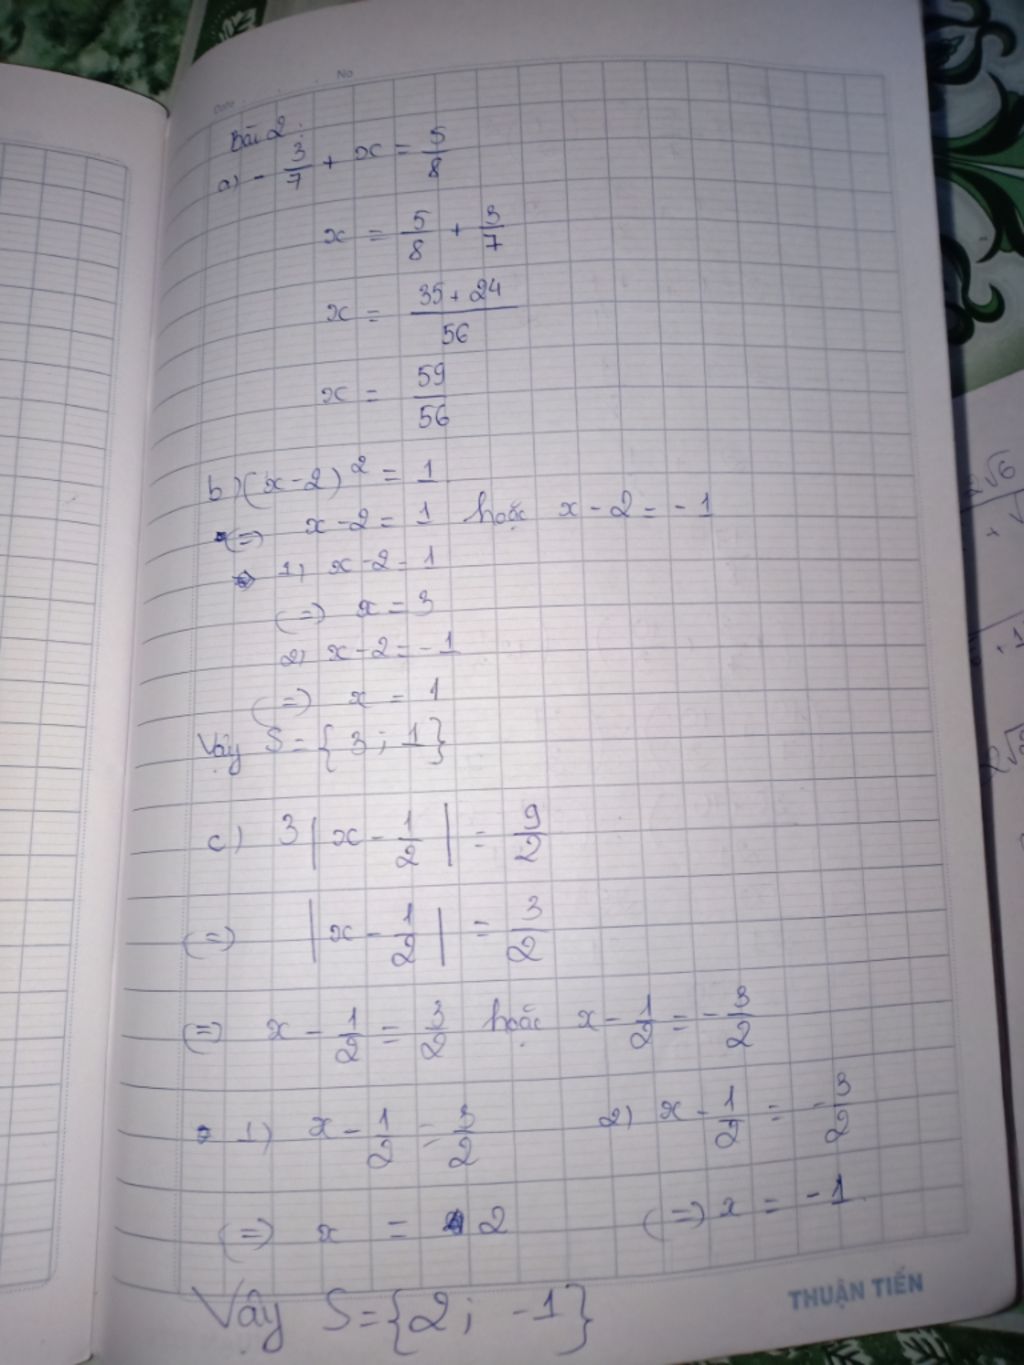 Date :
No
Bài 2:
a) - 3/7 + x = 5/8
x = 5/8 + 3/7
x = (35 + 24)/56
x = 59/56
b) (x-2)² = 1
(=) x-2 = 1 hoặc x-2 = -1
1) x-2 = 1
(=) x = 3
2) x-2 = -1
(=) x = 1
Vậy S = {3; 1}
c) 3|x - 1/2| = 9/2
(=) |x - 1/2| = 3/2
(=) x - 1/2 = 3/2 hoặc x - 1/2 = -3/2
1) x - 1/2 = 3/2 2) x - 1/2 = -3/2
(=) x = 2 (=) x = -1
Vậy S = {2; -1}
THUẬN TIẾN